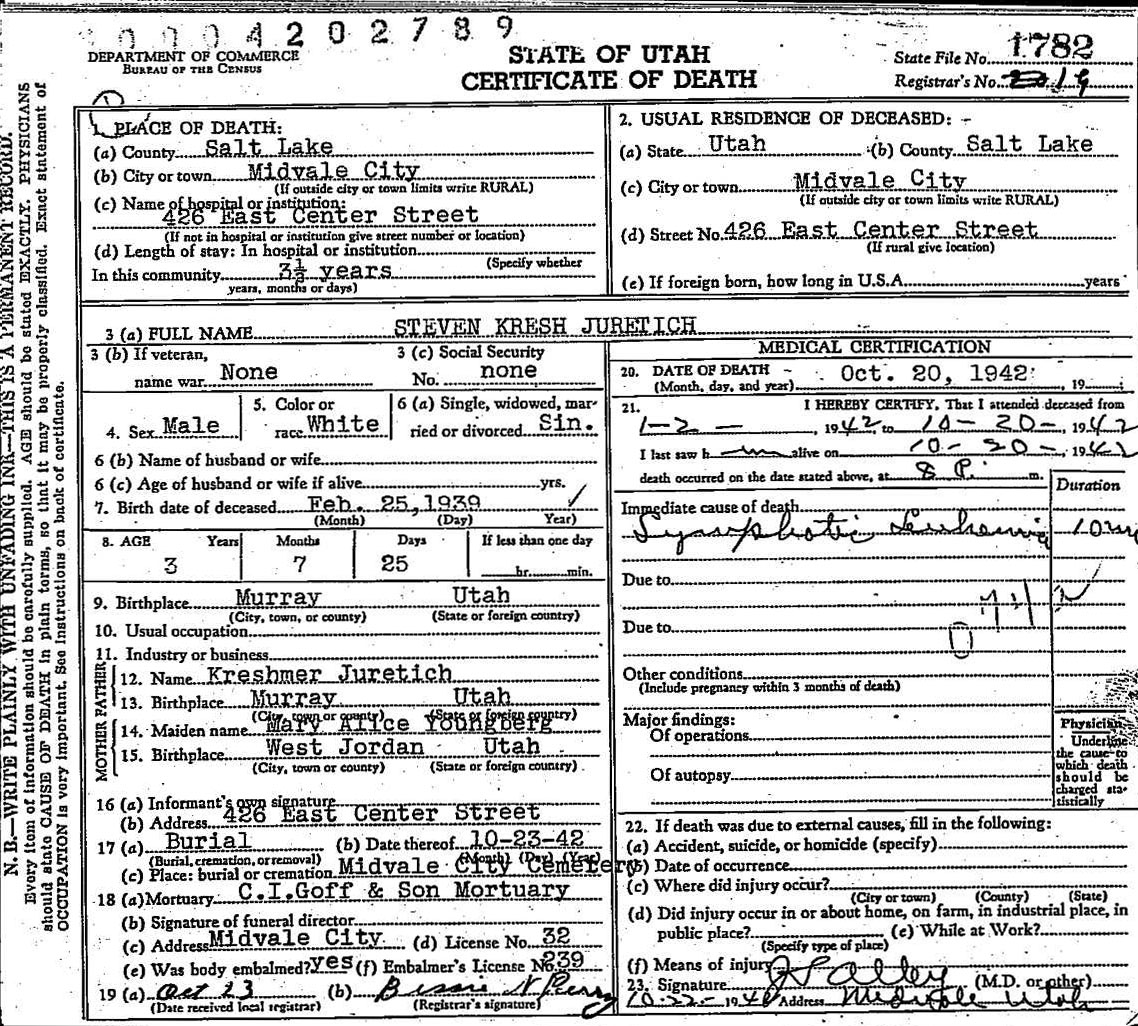 0004202789
DEPARTMENT OF COMMERCE
BUREAU OF THE CENSUS
STATE OF UTAH
CERTIFICATE OF DEATH
State File No. 1782
Registrar's No. 19
N. B.—WRITE PLAINLY WITH UNFADING INK—THIS IS A PERMANENT RECORD.
Every item of information should be carefully supplied. AGE should be stated EXACTLY. PHYSICIANS
should state CAUSE OF DEATH in plain terms, so that it may be properly classified. Exact statement of
OCCUPATION is very important. See instructions on back of certificate.
1. PLACE OF DEATH:
(a) County Salt Lake
(b) City or town Midvale City
(If outside city or town limits write RURAL)
(c) Name of hospital or institution:
426 East Center Street
(If not in hospital or institution give street number or location)
(d) Length of stay: In hospital or institution
(Specify whether
In this community 3½ years
years, months or days)
2. USUAL RESIDENCE OF DECEASED: -
(a) State Utah (b) County Salt Lake
(c) City or town Midvale City
(If outside city or town limits write RURAL)
(d) Street No. 426 East Center Street
(If rural give location)
(e) If foreign born, how long in U.S.A. years
3 (a) FULL NAME STEVEN KRESH JURETICH
3 (b) If veteran,
name war None
3 (c) Social Security
No. none
4. Sex Male
5. Color or
race White
6 (a) Single, widowed, mar-
ried or divorced Sin.
6 (b) Name of husband or wife
6 (c) Age of husband or wife if alive yrs.
7. Birth date of deceased Feb. 25, 1939
(Month) (Day) Year)
8. AGE Years Months Days If less than one day
3 7 25 hr. min.
9. Birthplace Murray Utah
(City, town, or county) (State or foreign country)
10. Usual occupation
11. Industry or business
FATHER
12. Name Kreshmer Juretich
13. Birthplace Murray Utah
(City, town or county) (State or foreign country)
MOTHER
14. Maiden name Mary Alice Youngberg
15. Birthplace West Jordan Utah
(City, town or county) (State or foreign country)
16 (a) Informant's own signature
(b) Address 426 East Center Street
17 (a) Burial (b) Date thereof 10-23-42
(Burial, cremation, or removal) (Month) (Day) (Year)
(c) Place: burial or cremation Midvale City Cemetery
18 (a) Mortuary C.I.Goff & Son Mortuary
(b) Signature of funeral director
(c) Address Midvale City (d) License No. 32
(e) Was body embalmed? yes (f) Embalmer's License No. 239
19 (a) Oct 23 (b) Bessie N Perry
(Date received local registrar) (Registrar's signature)
MEDICAL CERTIFICATION
20. DATE OF DEATH - Oct. 20, 1942
(Month, day, and year) , 19
21. I HEREBY CERTIFY, That I attended deceased from
1-2- , 1942, to 10-20-, 1942
I last saw him alive on 10-20-, 1942
death occurred on the date stated above, at 8 P. m.
Duration
Immediate cause of death
Lymphatic Leukemia 10 m
Due to
Due to
Other conditions
(Include pregnancy within 3 months of death)
Major findings:
Of operations
Of autopsy
Physician
Underline
the cause to
which death
should be
charged sta-
tistically
22. If death was due to external causes, fill in the following:
(a) Accident, suicide, or homicide (specify)
(b) Date of occurrence
(c) Where did injury occur?
(City or town) (County) (State)
(d) Did injury occur in or about home, on farm, in industrial place, in
public place? (e) While at Work?
(Specify type of place)
(f) Means of injury
23. Signature Alley (M.D. or other)
10-22- 194 Address Midvale Utah